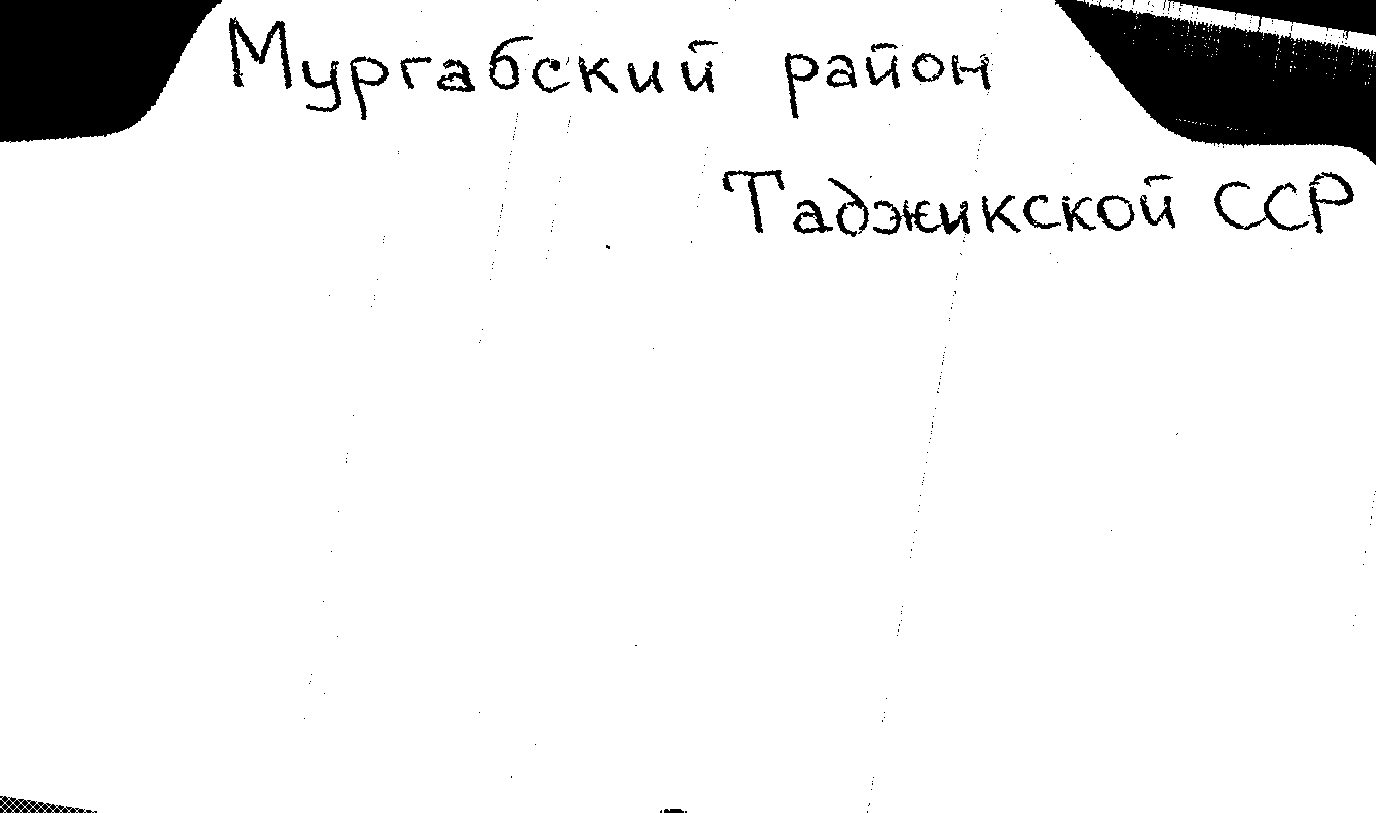 Мургабский район
Таджикской ССР